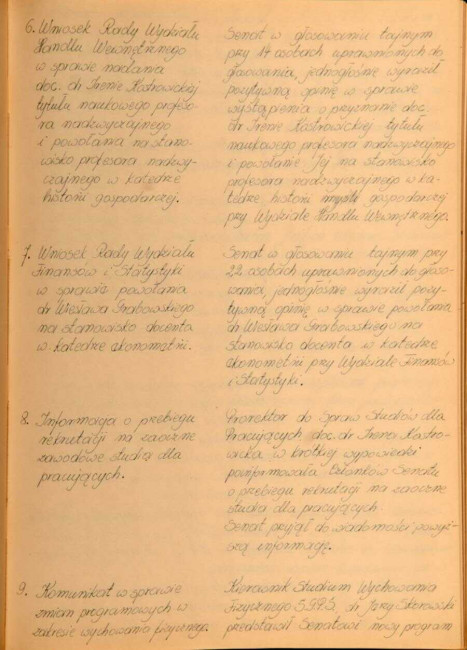 6. Wniosek Rady Wydziału
Handlu Wewnętrznego
w sprawie nadania
doc. dr Irenie Kostrowickiej
tytułu naukowego profeso-
ra nadzwyczajnego
i powołania na stano-
wisko profesora nadzwy-
czajnego w katedrze
historii gospodarczej.
Senat w głosowaniu tajnym
przy 17 osobach uprawnionych do
głosowania, jednogłośnie wyraził
pozytywną opinię w sprawie
wystąpienia o przyznanie doc.
dr Irenie Kostrowickiej tytułu
naukowego profesora nadzwyczajnego
i powołanie Jej na stanowisko
profesora nadzwyczajnego w ka-
tedrze historii myśli gospodarczej
przy Wydziale Handlu Wewnętrznego.
7. Wniosek Rady Wydziału
Finansów i Statystyki
w sprawie powołania
dr Wiesława Grabowskiego
na stanowisko docenta
w katedrze ekonometrii.
Senat w głosowaniu tajnym przy
22 osobach uprawnionych do głoso-
wania, jednogłośnie wyraził pozy-
tywną opinię w sprawie powołania
dr Wiesława Grabowskiego na
stanowisko docenta w katedrze
ekonometrii przy Wydziale Finansów
i Statystyki.
8. Informacja o przebiegu
rekrutacji na zaoczne
zawodowe studia dla
pracujących.
Prorektor do Spraw Studiów dla
Pracujących doc. dr Irena Kostro-
wicka w krótkiej wypowiedzi
poinformowała Członków Senatu
o przebiegu rekrutacji na zaoczne
studia dla pracujących
Senat przyjął do wiadomości powyż-
szą informację.
9. Komunikat w sprawie
zmian programowych w
zakresie wychowania fizycznego.
Kierownik Studium Wychowania
Fizycznego S.G.P.S. dr Jerzy Sikorowski
przedstawił Senatowi nowy program